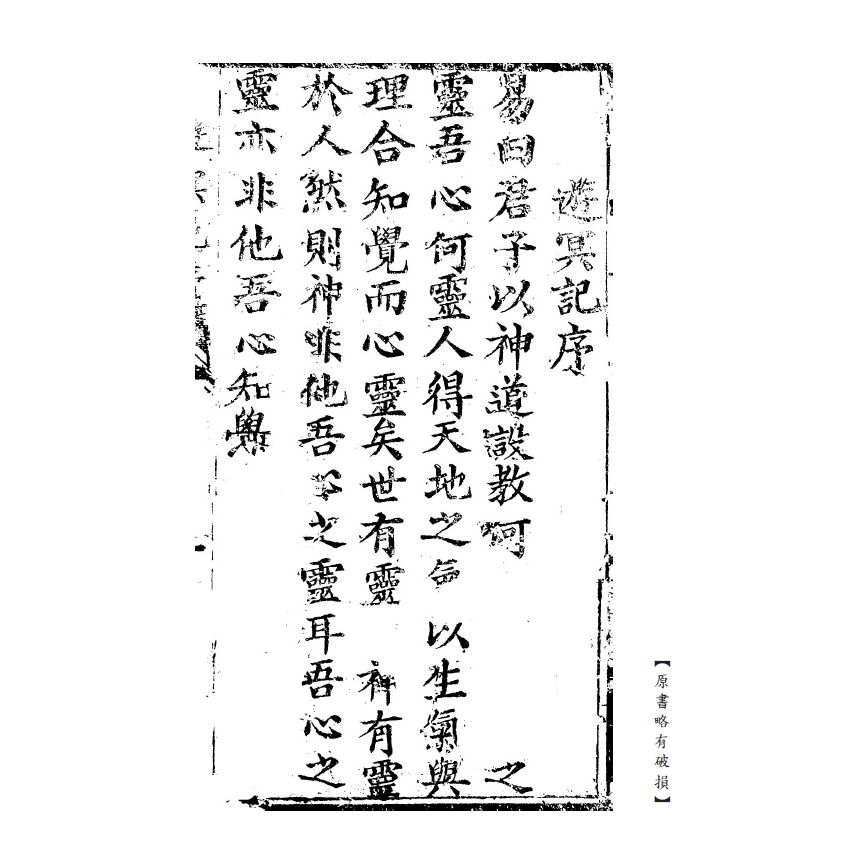 遊冥記序
易曰君子以神道設教何之
靈吾心何靈人得天地之氣以生氣與
理合知覺而心靈矣世有靈神有靈
於人然則神非他吾心之靈耳吾心之
靈亦非他吾心知覺
遊冥記序
【原書略有破損】